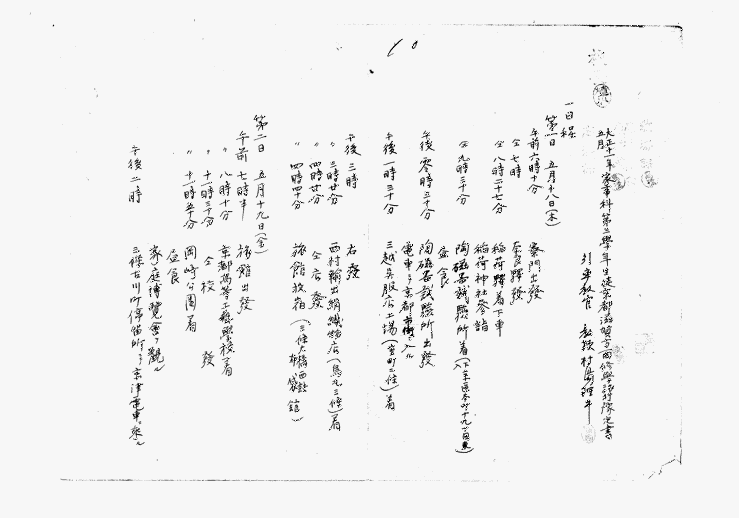 大正十一年五月 家事科第三學年生徒京都滋賀方面修學旅行狀況書
引率教官 教授 村
一 日程
第一日 五月十八日(木)
午前六時十分 寮門出發
仝 七時 奈良驛發
仝 八時二十七分 稲荷驛着下車
稲荷神社參詣
仝 九時三十分 陶磁器試驗所着
昼食
午後 零時三十分 陶磁器試驗所出發
電車ヨリ京都市街ニ入ル
午後 一時三十分 三越呉服店工場(室町二條)着
午後 三時 右發
〃 三時廿分 西村輸出絹織物店(烏丸三條)着
〃 四時廿分 仝店發
〃 四時四十分 旅館投宿(三條大橋西詰 館)
第二日 五月十九日(金)
午前 七時半 旅館出發
〃 八時十分 京都高等工藝學校着
〃 十一時三十分 仝校 發
〃 十一時五十分 岡崎公園着
昼食
家庭博覽會ヲ觀ル
午後 二時 三條古川町停留所ヨリ京津電車ニ乗ル